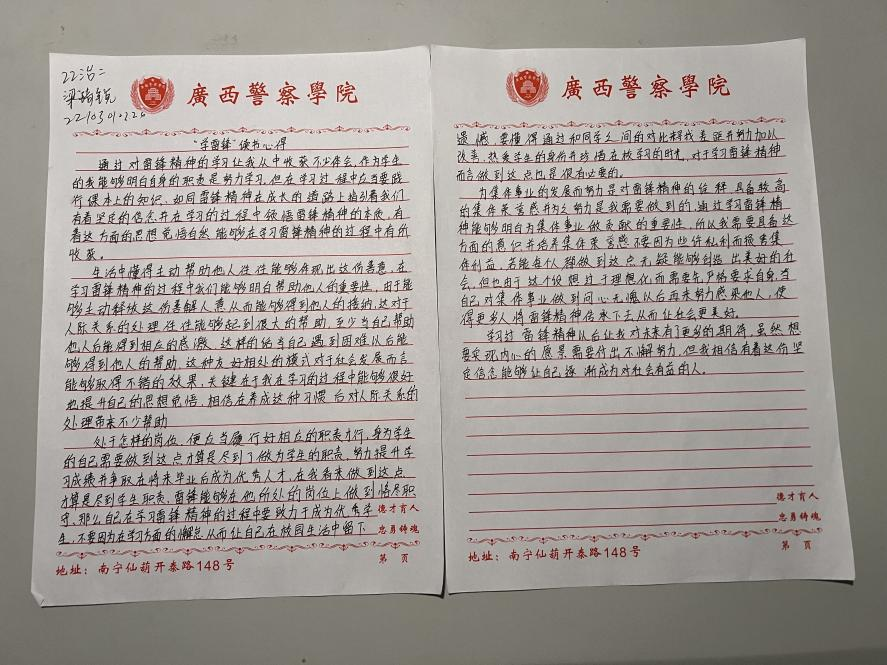 22治二
梁
廣西警察學院
"学雷锋"读书心得
通过对雷锋精神的学习让我从中收获不少体会,作为学生
的我能够明白自身的职责是努力学习,但在学习过程中应当要践
行课本上的知识,如同雷锋精神在成长的道路上指引着我们
有着坚定的信念并在学习的过程中领悟雷锋精神的本质,有
着这方面的思想觉悟自然能够在学习雷锋精神的过程中有所
收获。
生活中懂得主动帮助他人往往能够体现出这份善意,在
学习雷锋精神的过程中我们能够明白帮助他人的重要性,由于能
够主动释放这份善解人意从而能够得到他人的接纳,这对于
人际关系的处理往往能够起到很大的帮助,至少当自己帮助
他人后能得到相应的感激,这样的话当自己遇到困难以后能
够得到他人的帮助,这种友好相处的模式对于社会发展而言
能够取得不错的效果,关键在于我在学习的过程中能够很好
地提升自己的思想觉悟,相信在养成这种习惯后对人际关系的
处理带来不少帮助
处于怎样的岗位,便应当履行好相应的职责才行,身为学生
的自己需要做到这点才算是尽到了做为学生的职责,努力提升学
习成绩并争取在将来毕业后成为优秀人才,在我看来做到这点
才算是尽到学生职责,雷锋能够在他所处的岗位上做到恪尽职
守,那么自己在学习雷锋精神的过程中要致力于成为优秀学
生,不要因为在学习方面的懈怠从而让自己在校园生活中留下
德才育人
忠勇铸魂
地址:南宁仙葫开泰路148号
第 页
廣西警察學院
遗憾,要懂得通过和同学之间的对比释找差距并努力加以
改善,热爱学生的身份并珍惜在校学习的时光,对于学习雷锋精神
而言做到这点也是很有必要的。
为集体事业的发展而努力是对雷锋精神的诠释,具备较高
的集体荣誉感并为之努力是我需要做到的,通过学习雷锋精
神能够明白为集体事业做贡献的重要性,所以我需要具备这
方面的意识并培养集体荣誉感不要因为些许私利而损害集
体利益,若能每个人都做到这点无疑能够创造出美好的社
会,但也由于这个设想过于理想化而需要先严格要求自身,当
自己对集体事业做到问心无愧以后再来努力感染他人,使
得更多人将雷锋精神传承下去从而让社会更美好。
学习过雷锋精神以后让我对未来有了更多的期待,虽然想
要实现内心的愿景需要付出不懈努力,但我相信有着这份坚
定信念能够让自己逐渐成为对社会有益的人。
德才育人
忠勇铸魂
地址:南宁仙葫开泰路148号
第 页